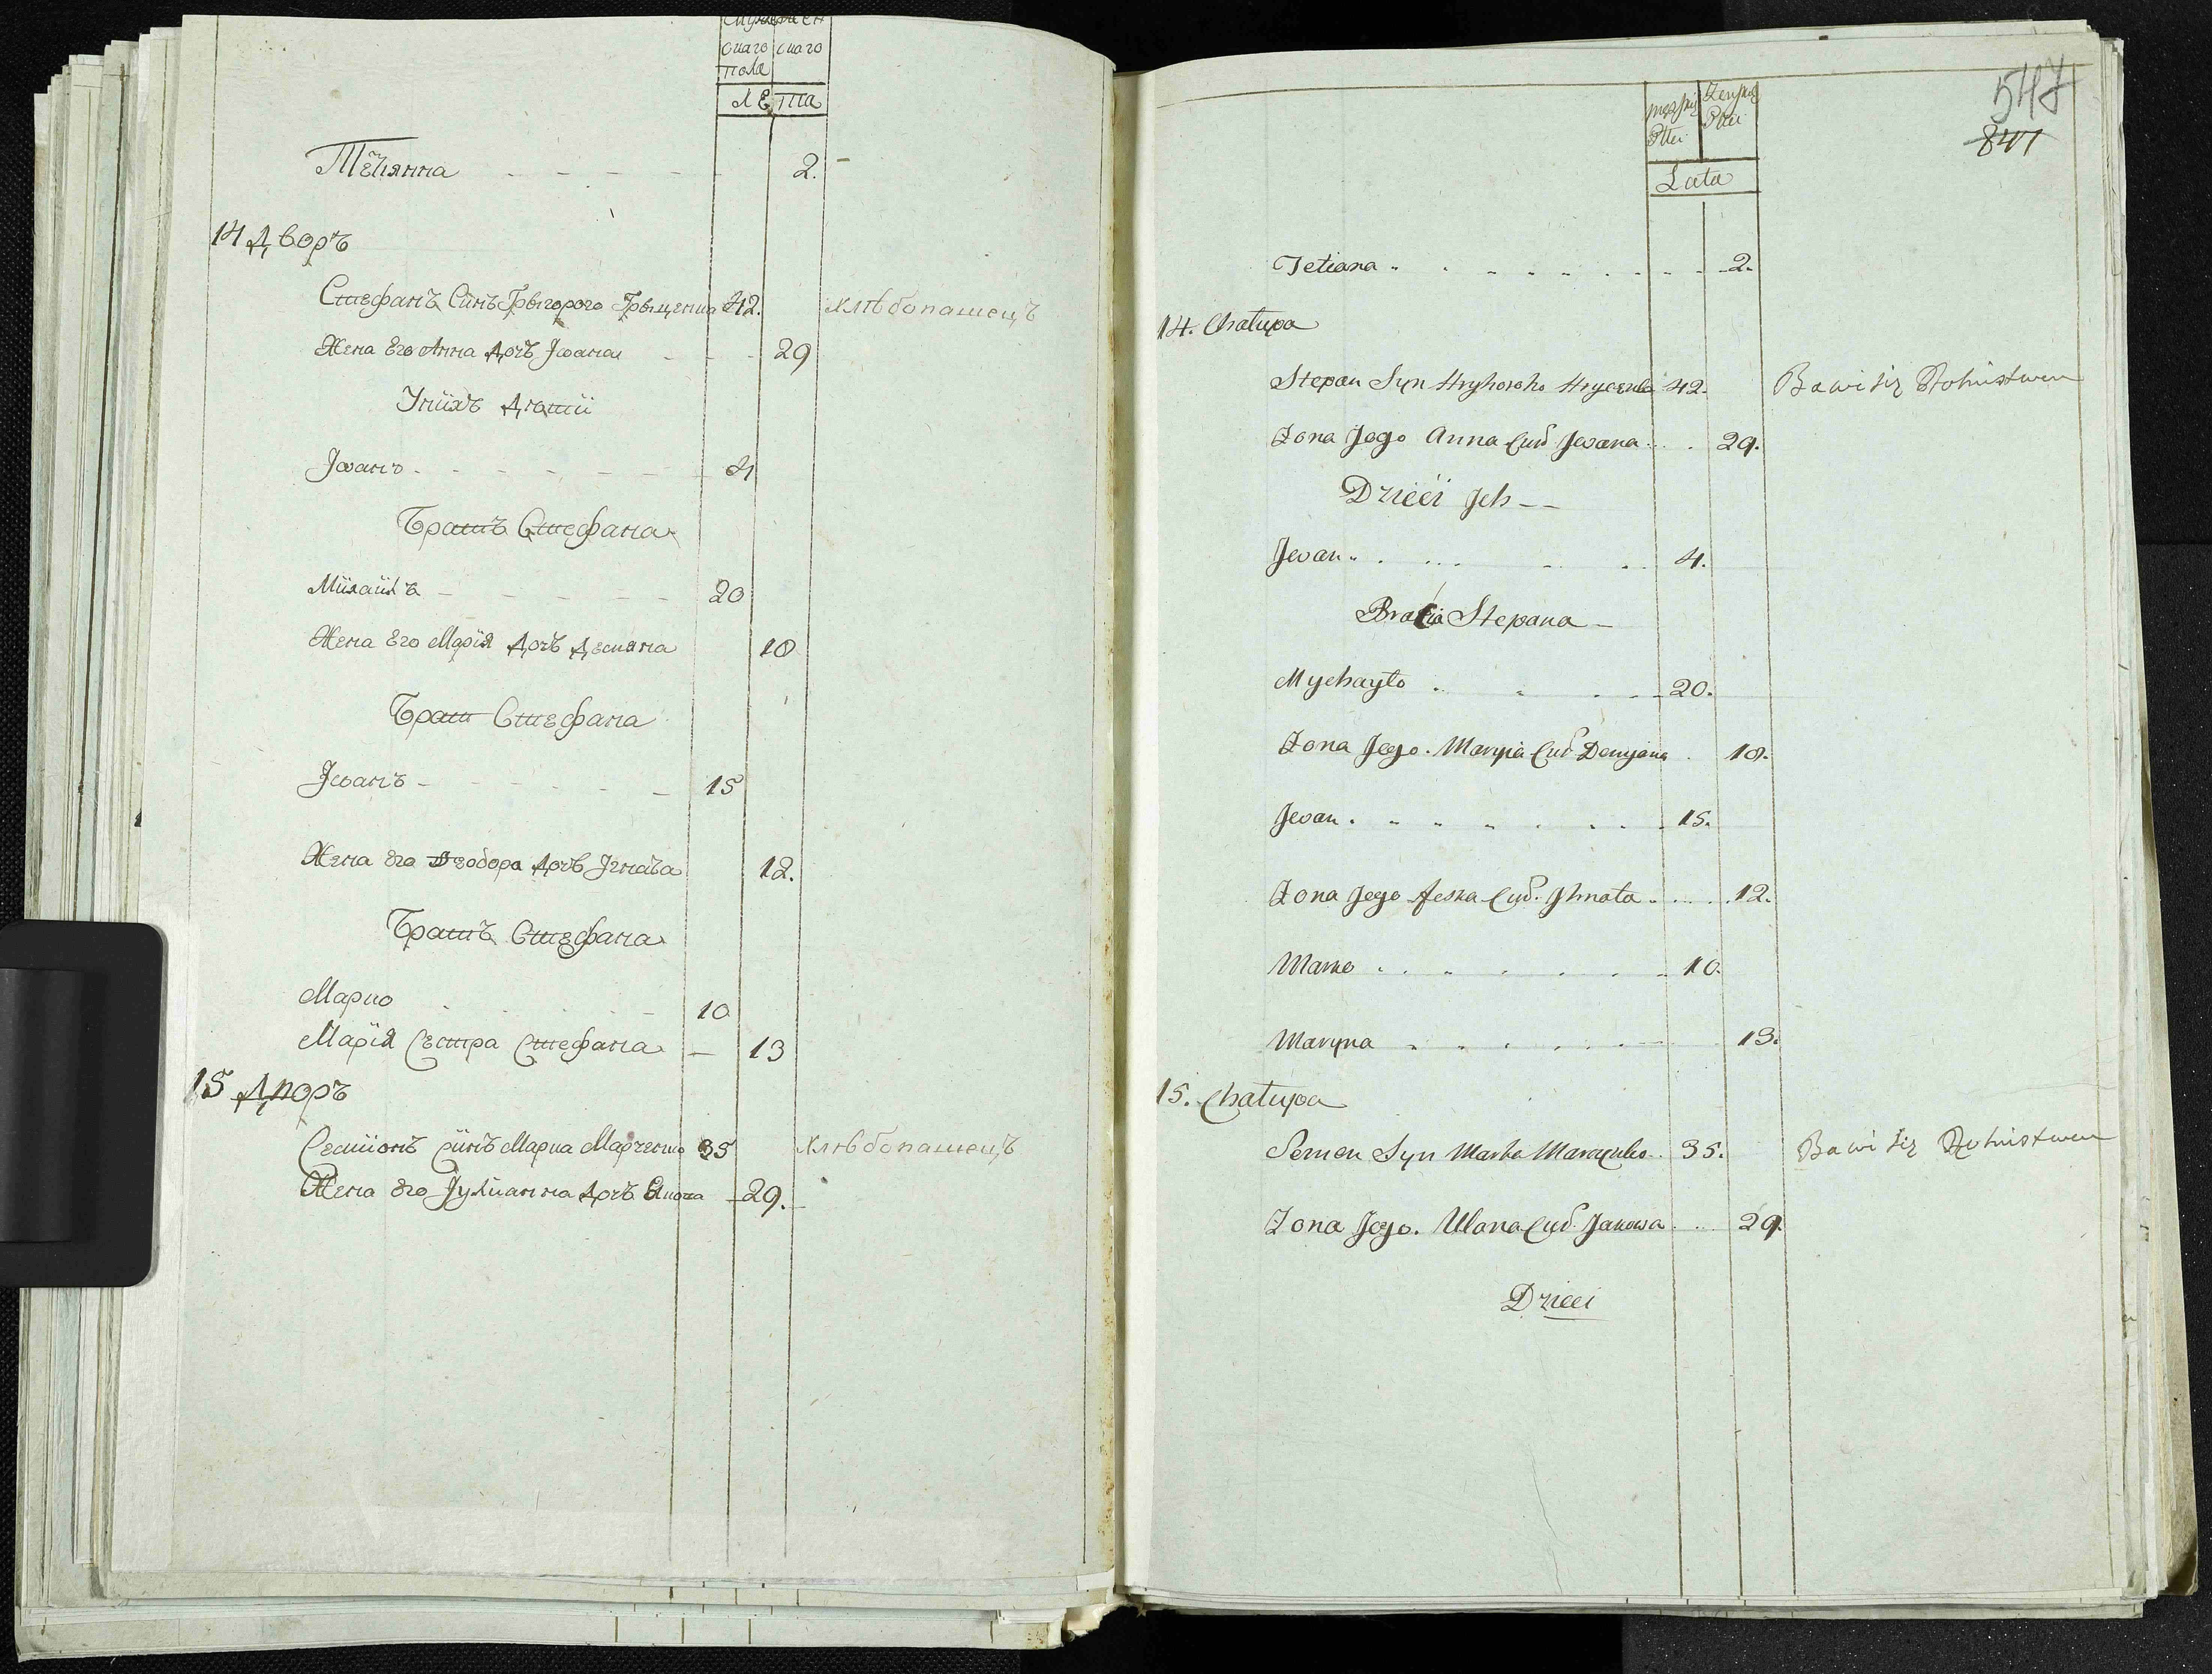 снаго снаго
пола
лета
Тетiянна 2.
14 Дворъ
Стефанъ Синъ Грыгорого Грыценка 42. хлѣбопашецъ
Жена Его Анна Дочь Iвана 29
У нiихъ Дѣтii
Iванъ 4
Братъ Стефана
Мiхаiлъ 20
Жена Его Марiя Дочь Демяна 18
Брат Стефана
Iванъ 15
Жена его Феодора Дочь Iгната 12.
Братъ Стефана
Марко 10
Марiя Сестра Стефана 13
15 Дворъ
Семiонъ сiнъ Марка Марченка 35 хлѣбопашецъ
Жена его Iулианна Дочь Якова 29.
547
847
męzkiej Żeńskiej
Płci Płci
Lata
Tetiana 2.
14. Chałupa
Stepan Syn Hryhoroho Hrycenka 42. Bawi się Rolnistwem
Zona Jego Anna Cur Jwana 29.
Dzieci Jch
Jwan 4.
Bracia Stepana
Mychayło 20.
Zona Jego. Maryia Cur Demjana 18.
Jwan 15.
Zona Jego Feska Cur. Jhnata 12.
Marko 10.
Maryna 13.
15. Chałupa
Semen Syn Marka Marczenko 35. Bawi się Rolnistwem
Zona Jego. Ulana Cur. Jakowa 29.
Dzieci